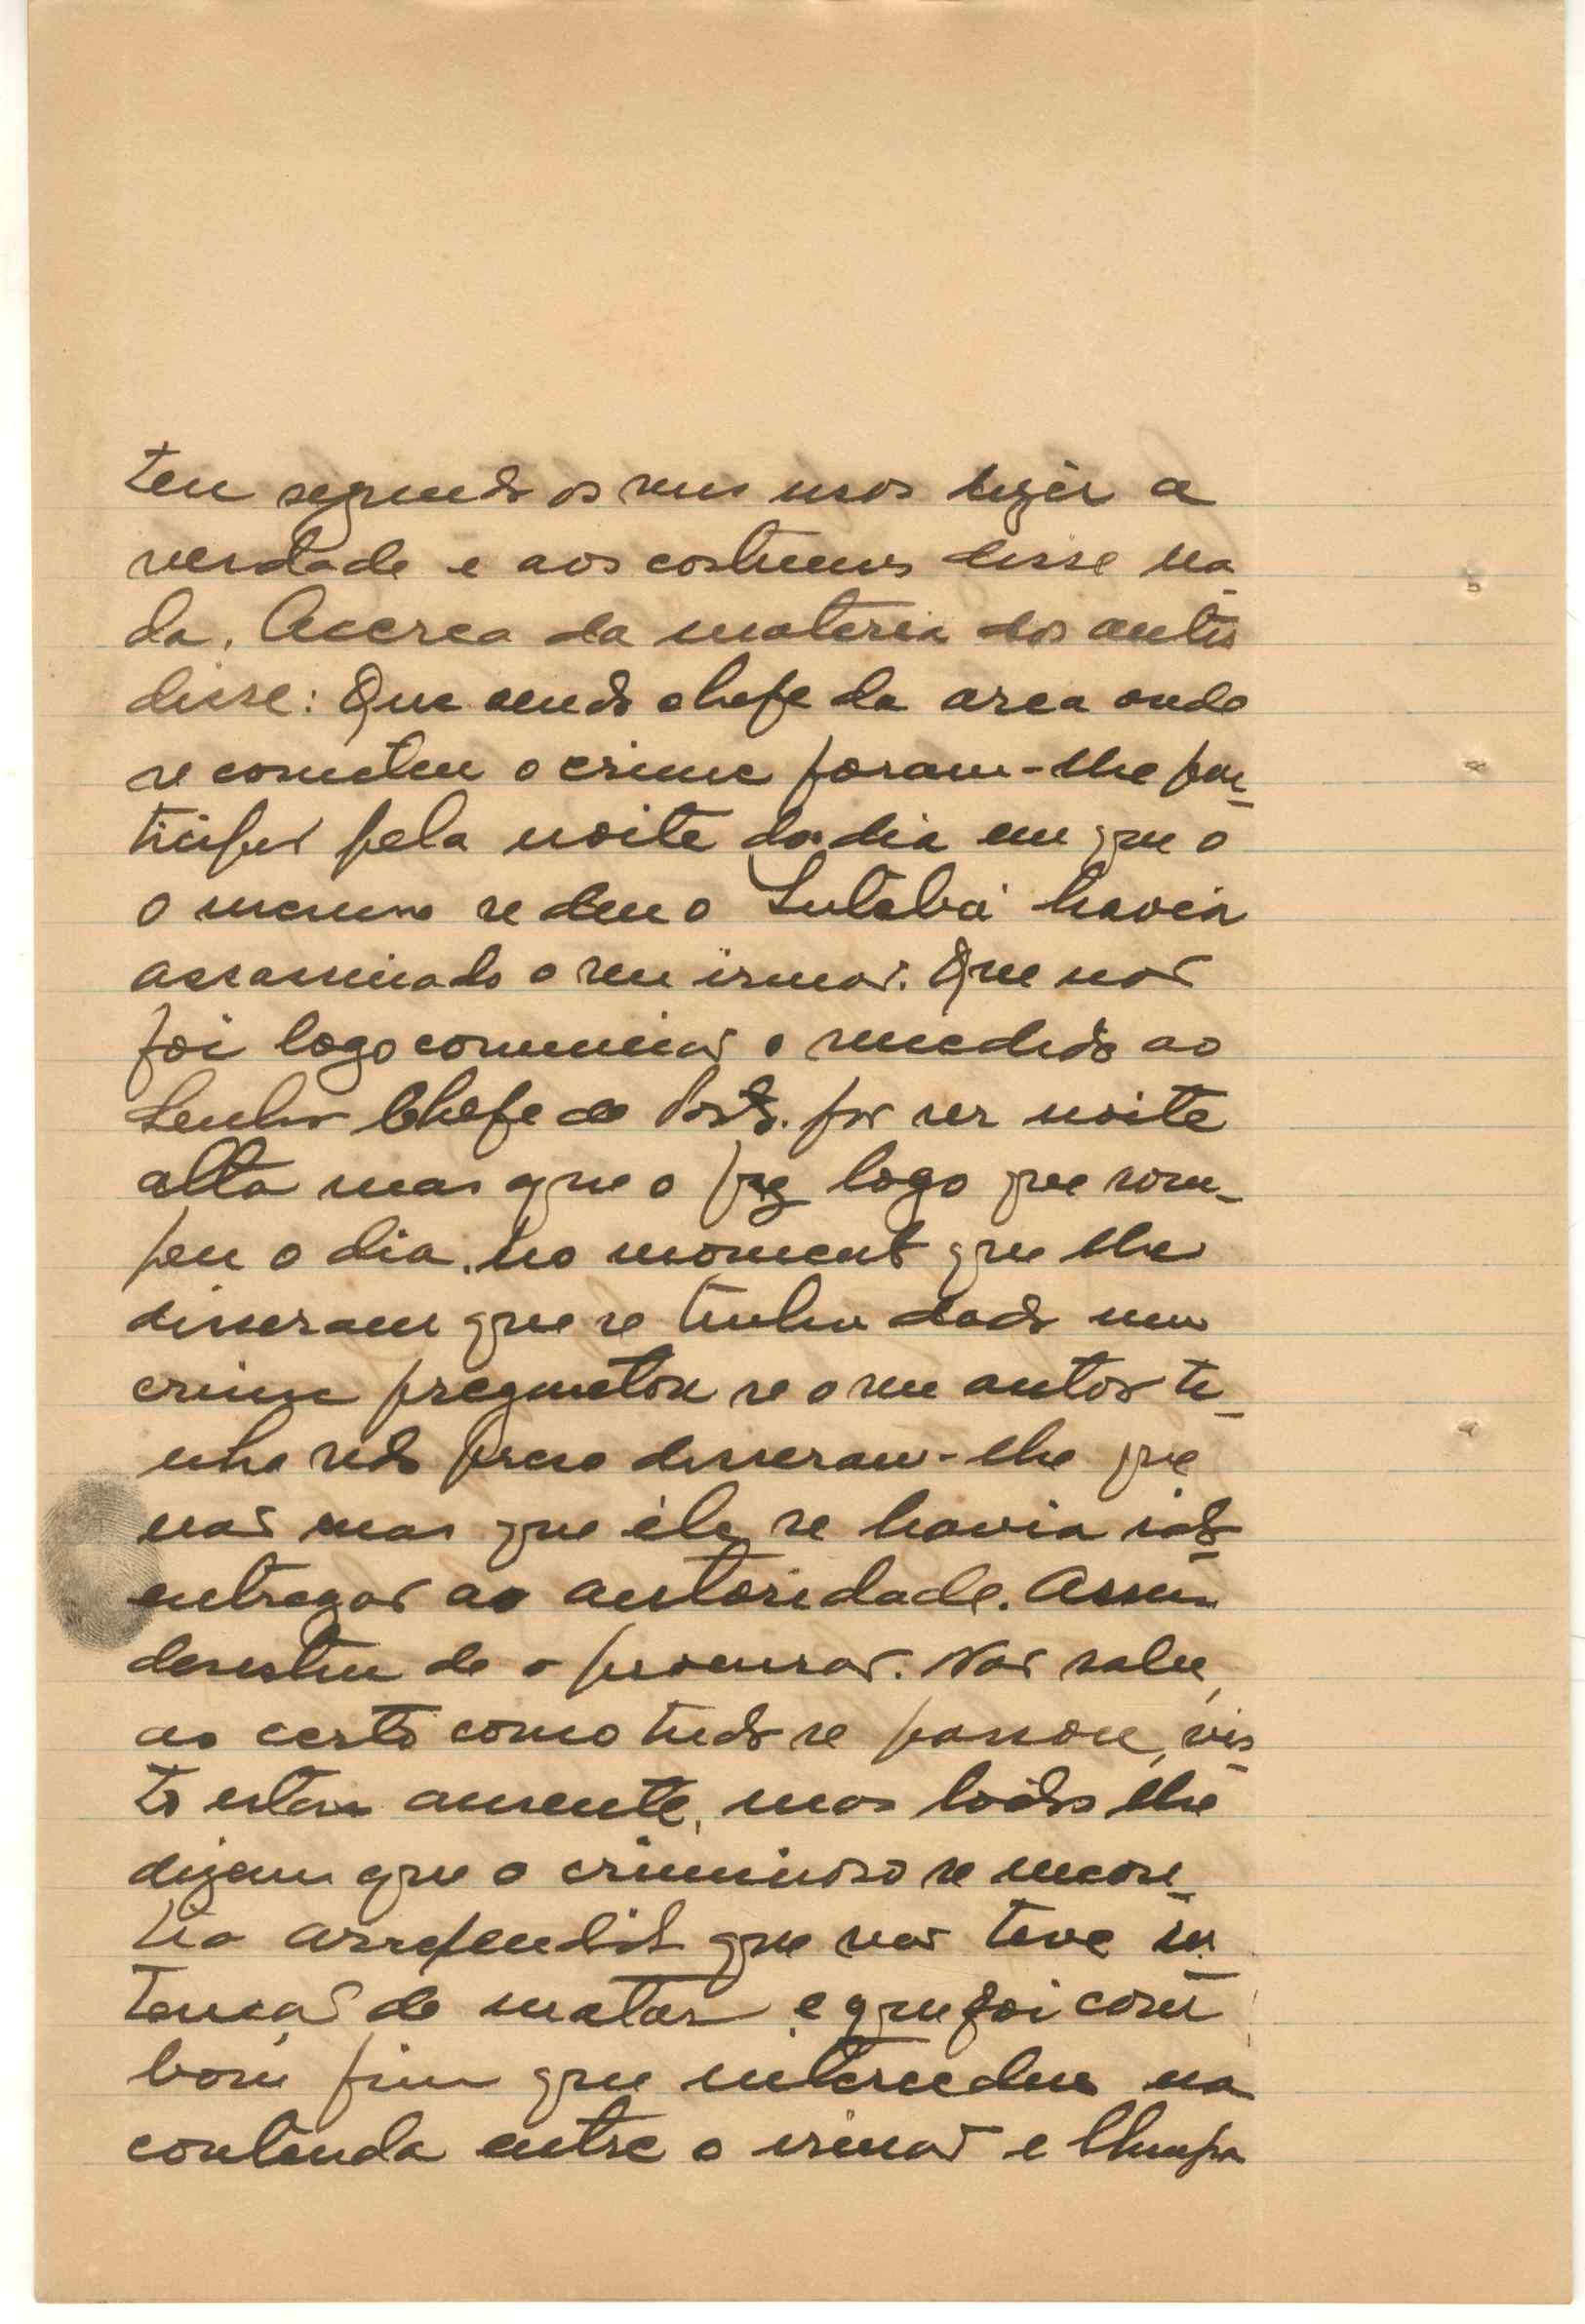 teu segundo os seus usos dizer a
verdade e aos costumes disse na-
da. Acerca da materia dos autos
disse: Que sendo chefe da area onde
se cometeu o crime foram-lhe par-
ticipar pela noite do dia em que o
o mesmo se deu o Lutaba havia
assassinado o seu irmão. Que não
foi logo comunicar o sucedido ao
Senhor Chefe de Posto. por ser noite
alta mas que o fez logo que rom-
peu o dia. no momento que lhe
disseram que se tinha dado um
crime preguntou se o seu autor ti-
nha sido preso disseram-lhe que
não mas que êle se havia ido
entregar ao autoridade. Assim
desistiu de o procurar. Não sabe,
ao certo como tudo se passou, vis-
to estar ausente, mas todos lhe
dizem que o criminoso se encon-
tra arrependido que não teve in-
tenção de matar e que foi com
bom fim que intercedeu na
contenda entre o irmão e